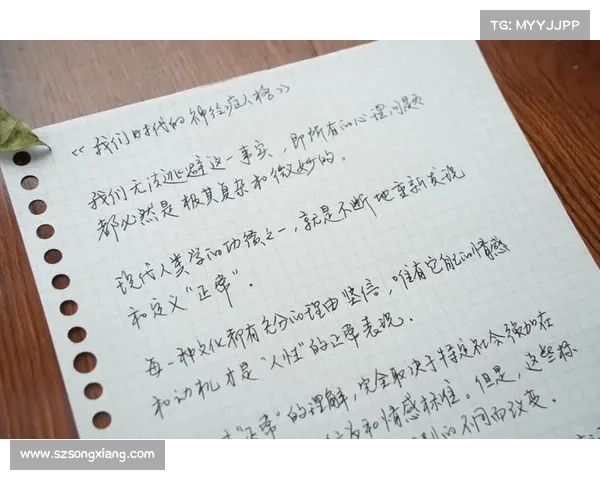 TG: MYYJJPP
《我们时代的神经症人格》
我们无法逃避这一事实，即所有的心理问题
都必然是极其复杂和微妙的。
现代人类学的功绩之一，就是不断地重新发现
和定义“正常”.
每一种文化都有充分的理由坚信，唯有它能的情感
和动机才是“人性”的正常表现.
“正常”的理解，完全取决于特定社会强加在
和情感标准。但是，这些标
的不同而改变.
www.szsongxiang.com